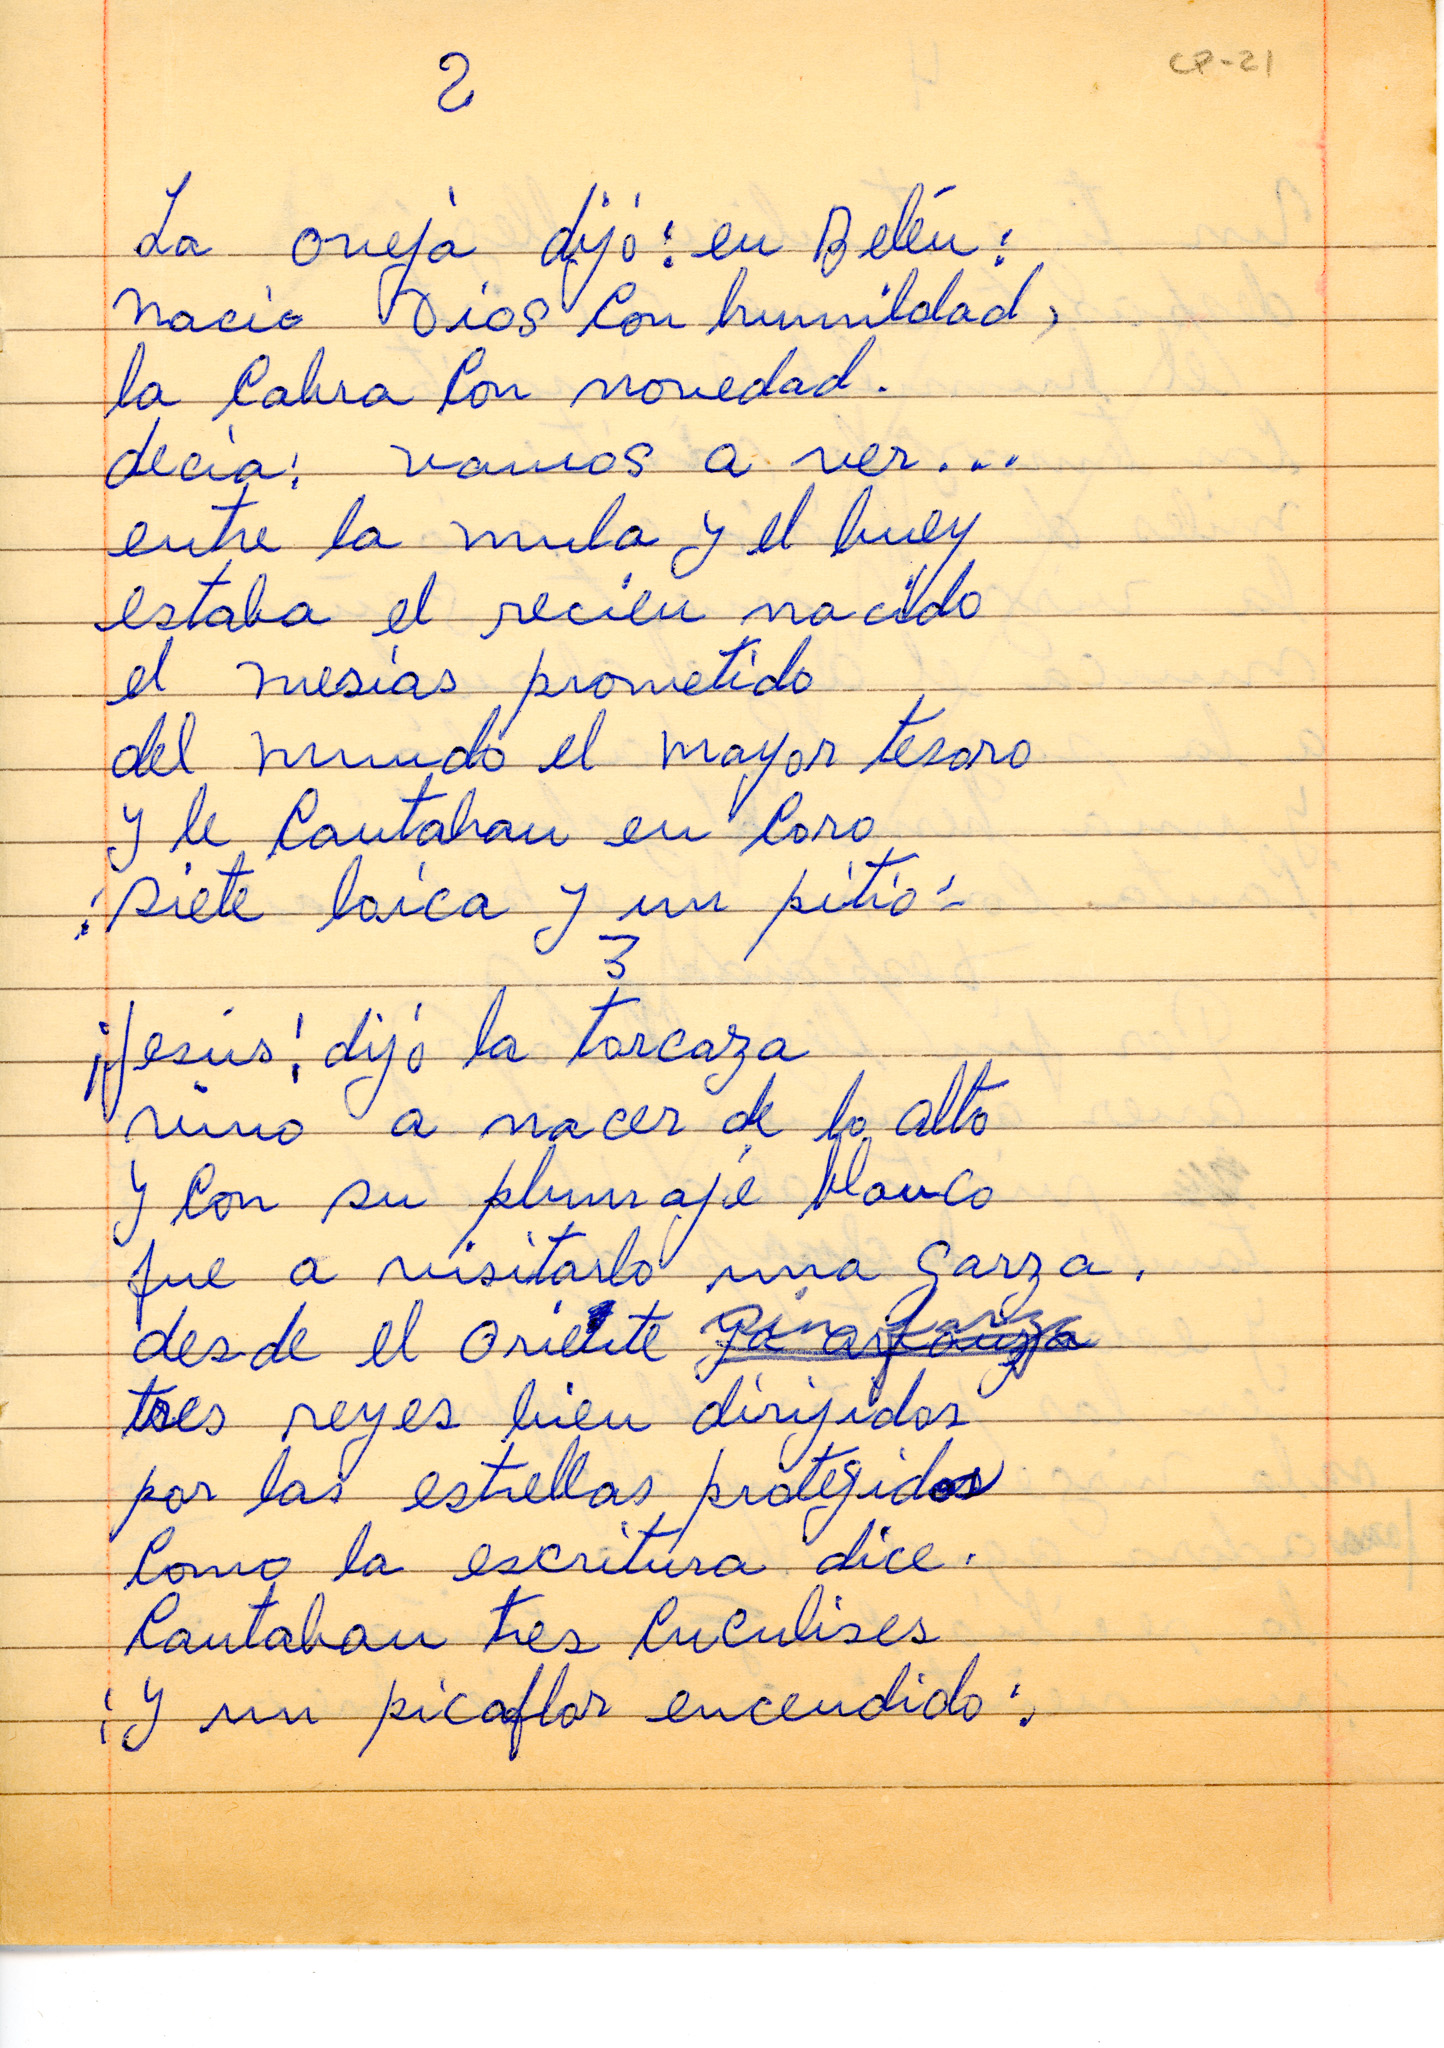 CP-21
2
La oveja dijó: en Belén:
nacio Dios con humildad,
la cabra con novedad.
decia: vamos a ver...
entre la mula y el buey
estaba el recien nacido
el mesías prometido
del mundo el mayor tesoro
y le cantaban en coro
¡siete loica y un pitio!
3
¡Jesús! dijó la torcaza
vino a nacer de lo alto
y con su plumaje blanco
fue a visitarlo una garza.
desde el oriente sin farza
tres reyes bien dirijidos
por las estrellas protegidos
como la escritura dice.
cantaban tres cuculises
¡y un picaflor encendido!